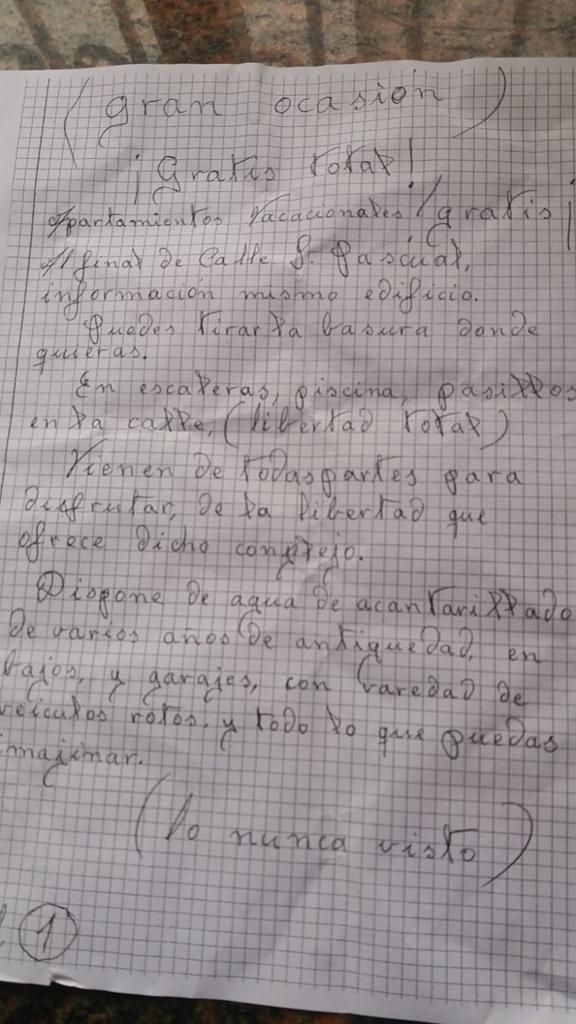 (gran ocasión)
¡Gratis total!
Apartamientos vacacionales/gratis¡
Al final de Calle S. Pascual,
información mismo edificio.
Puedes tirar la basura donde
quieras.
En escaleras, piscina, pasillos
en la calle, (libertad total)
Vienen de todas partes para
disfrutar, de la libertad que
ofrece dicho complejo.
Dispone de agua de acantarillado
de varios años de antiguedad, en
bajos, y garajes, con varedad de
veiculos rotos, y todo lo que puedas
imajimar.
(lo nunca visto)
1